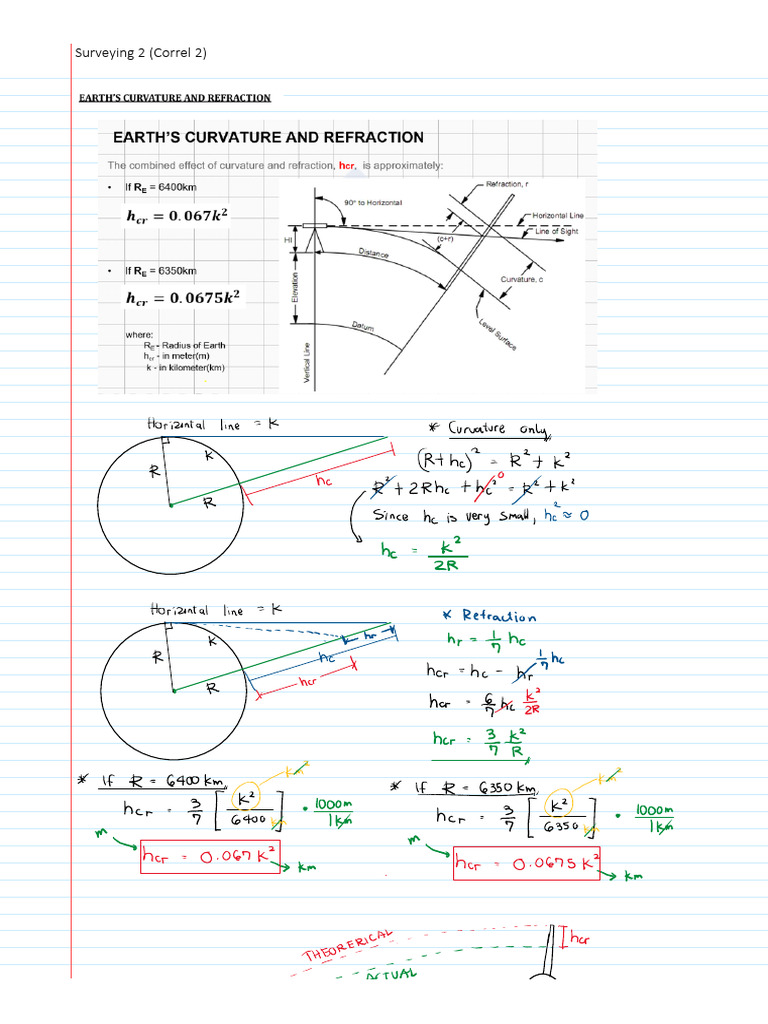 Surveying 2 (Correl 2)
EARTH'S CURVATURE AND REFRACTION
EARTH'S CURVATURE AND REFRACTION
The combined effect of curvature and refraction, hcr, is approximately:
• If R_E = 6400km
h_cr = 0.067k²
• If R_E = 6350km
h_cr = 0.0675k²
where:
R_E - Radius of Earth
h_cr - in meter(m)
k - in kilometer(km)
Refraction, r
90° to Horizontal
Horizontal Line
Line of Sight
HI
(c+r)
Distance
Curvature, c
Elevation
Datum
Level Surface
Vertical Line
Horizontal line = K
K
R
R
hc
* Curvature only
(R+hc)² = R² + K²
R² + 2Rhc + hc² 0 = R² + K²
Since hc is very small, hc² ≈ 0
hc = K² / 2R
Horizontal line = K
K
R
R
hr
hc
hcr
* Refraction
hr = 1/7 hc
hcr = hc - hr 1/7 hc
hcr = 6/7 hc K²/2R
hcr = 3/7 K²/R
* If R = 6400 km,
hcr = 3/7 [K² km² / 6400 km] • 1000m / 1km
m
hcr = 0.067 K²
km
* If R = 6350 km,
hcr = 3/7 [K² km² / 6350 km] • 1000m / 1km
m
hcr = 0.0675 K²
km
THEORERICAL
ACTUAL
hcr